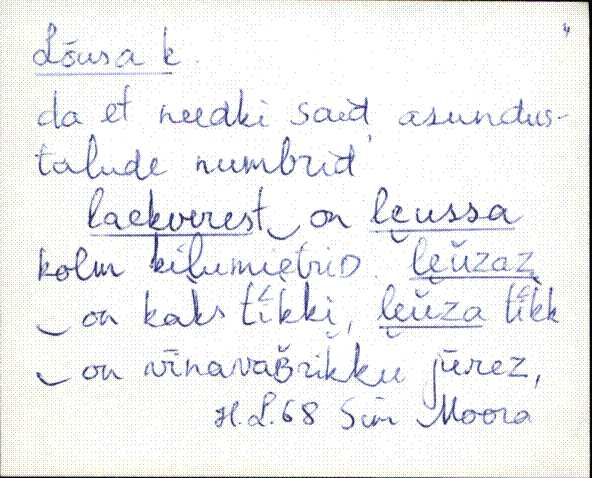 Lõusa k.
da et needki said, asundus-
talude numbrid
laekverest‿ on lęussa
kolm kilumietriD. lęŭzaz
‿on kaks tíkki, lęŭza tíkk
‿on vīnavaBrikku jūrez,
H.L. 68 Sim Moora